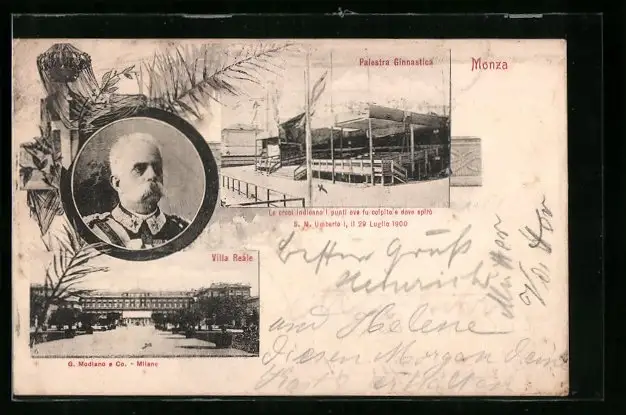 Palestra Ginnastica
Monza
Le croci indicano i punti ove fu colpito e dove spirò
S. M. Umberto I, il 29 Luglio 1900
Villa Reale
G. Modiano e Co. - Milano
Besten Gruß
Heinrich
und Helene
Mutter
diesen Morgen dein
Karte erhalten